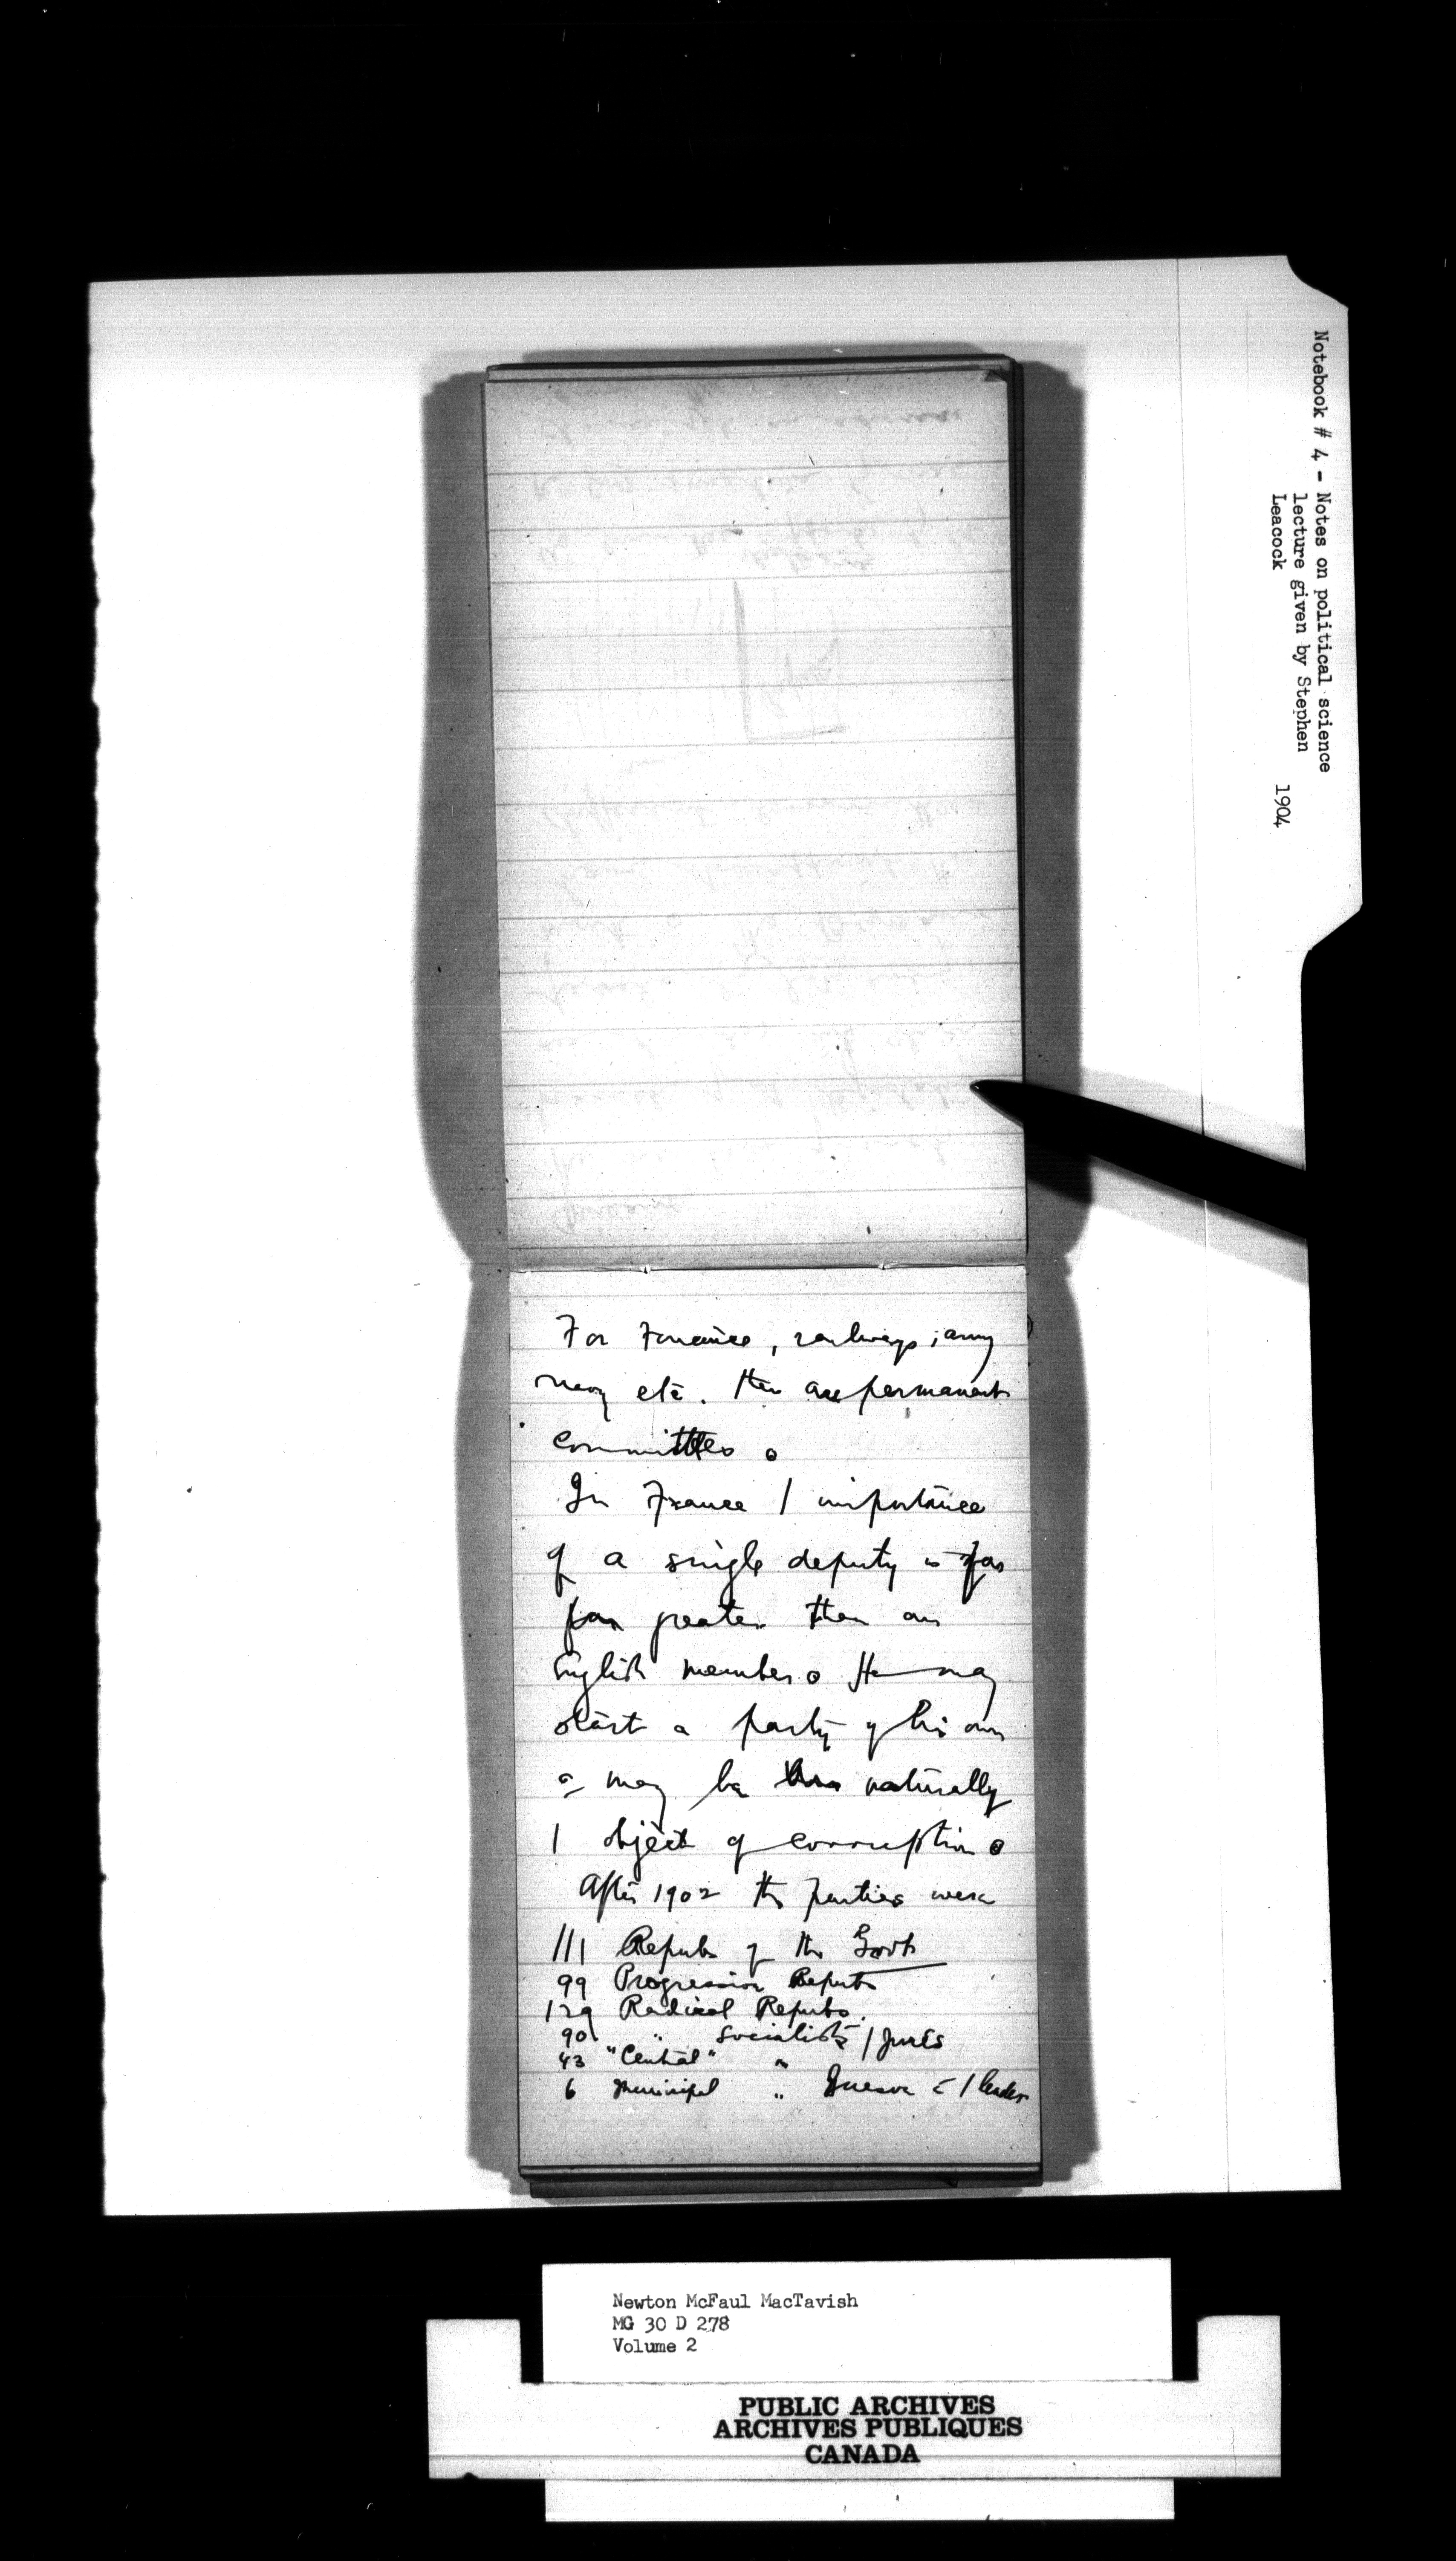 Notebook # 4 - Notes on political science
lecture given by Stephen
Leacock 1904
For Finance, railways, army
navy etc. there are permanent
committees.
In France / importance
of a single deputy is far
far greater than an
English member. He may
start a party of his own
& may be naturally
/ object of corruption.
After 1902 the parties were
111 Repubs of the Govt
99 Progressive Repubs
129 Radical Repubs.
90 " Socialists / Jures
43 "Central" "
6 Municipal " / leader
Newton McFaul MacTavish
MG 30 D 278
Volume 2
PUBLIC ARCHIVES
ARCHIVES PUBLIQUES
CANADA